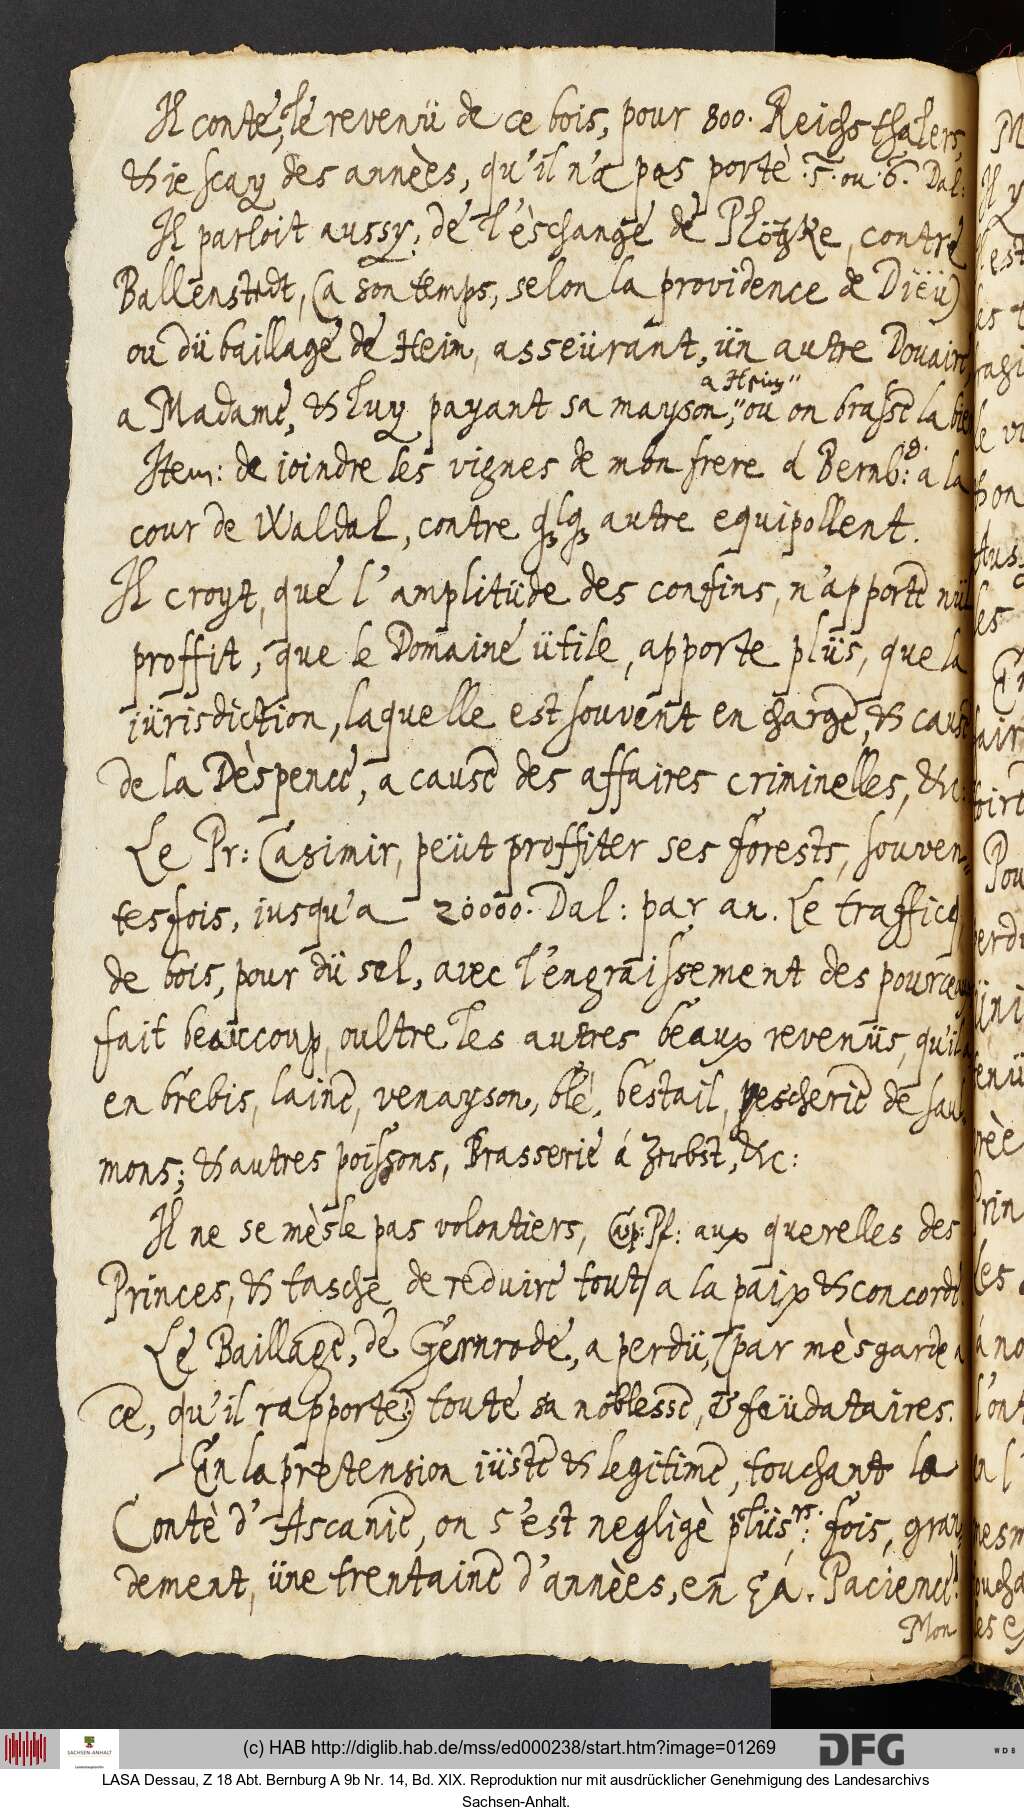 Il conte, le revenü de ce bois, pour 800. Reichsthalers,
& je scay des annèes, qu'il n'a pas portè .5. ou .6. Dal:
Il parloit aussy, de l'èschange de Plötzke, contre
Ballenstedt, (a son temps, selon la providence de Dïeu)
ou dü baillage de Heim, asseürant, ün autre Douaire
a Madame, & luy payant sa mayson, a Heim, ou on brasse la bie
Item: de joindre les vignes de mon frere a Bernb:g. a la
cour de Waldal, contre autre equipollent.
Il croyt, que l'amplitüde des confins, n'apporte nül
proffit, que le Domaine ütile, apporte plüs, que la
jürisdiction, laquelle est souvent en charge, & cause
de la Dèspence, a cause des affaires criminelles, &c:
Le Pr: Casimir, peüt proffiter ses forests, souven-
tesfois, jusqu'a 20000. Dal: par an. Le trafficq
de bois, pour dü sel, avec l'engraissement des pourceaux
fait beaucoup, oultre les autres beaux revenüs, qu'il a
en brebis, laine, venayson, blé, bestail, pescherie de sau-
mons; & autres poissons, Brasserie á Zerbst, &c:
Il ne se mèsle pas volontiers, Casp: Pf: aux querelles des
Princes, & tasche de reduire tout/ a la paix & concorde
Le Baillage, de Gernrode, a perdü, (par mèsgarde a
ce, qu'il rapporte;) toute sa noblesse, & feüdataires.
En la pretension jüste & legitime, touchant la
Contè d'Ascanie, on s'est negligè plüs:rs. fois, gran-
dement, üne trentaine d'annèes, en çá. Pacience!
Mon
(c) HAB http://diglib.hab.de/mss/ed000238/start.htm?image=01269
SACHSEN-ANHALT
DFG
WDB
LASA Dessau, Z 18 Abt. Bernburg A 9b Nr. 14, Bd. XIX. Reproduktion nur mit ausdrücklicher Genehmigung des Landesarchivs
Sachsen-Anhalt.